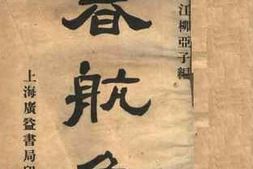 江柳亞子編
春航
上海廣益書局